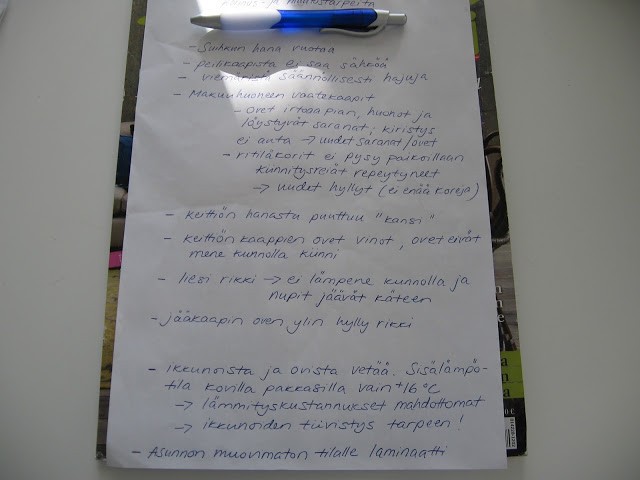 - ja muutostarpeita
- Suihkun hana vuotaa
- peilikaapista ei saa sähköä
- viemäristä säännöllisesti hajuja
- Makuuhuoneen vaatekaapit
- ovet irtoaa pian, huonot ja
löystyvät saranat, kiristys
ei auta → uudet saranat/ovet
- ritiläkorit ei pysy paikoillaan
kiinnitysreiät repeytyneet
→ uudet hyllyt (ei enää koreja)
- keittiön hanasta puuttuu "kansi"
- keittiön kaappien ovet vinot, ovet eivät
mene kunnolla kiinni
- liesi rikki → ei lämpene kunnolla ja
nupit jäävät käteen
- jääkaapin oven ylin hylly rikki
- ikkunoista ja ovista vetää. Sisälämpö-
tila kovilla pakkasilla vain +16 °C
→ lämmityskustannukset mahdottomat
→ ikkunoiden tiivistys tarpeen!
- Asunnon muovimaton tilalle laminaatti